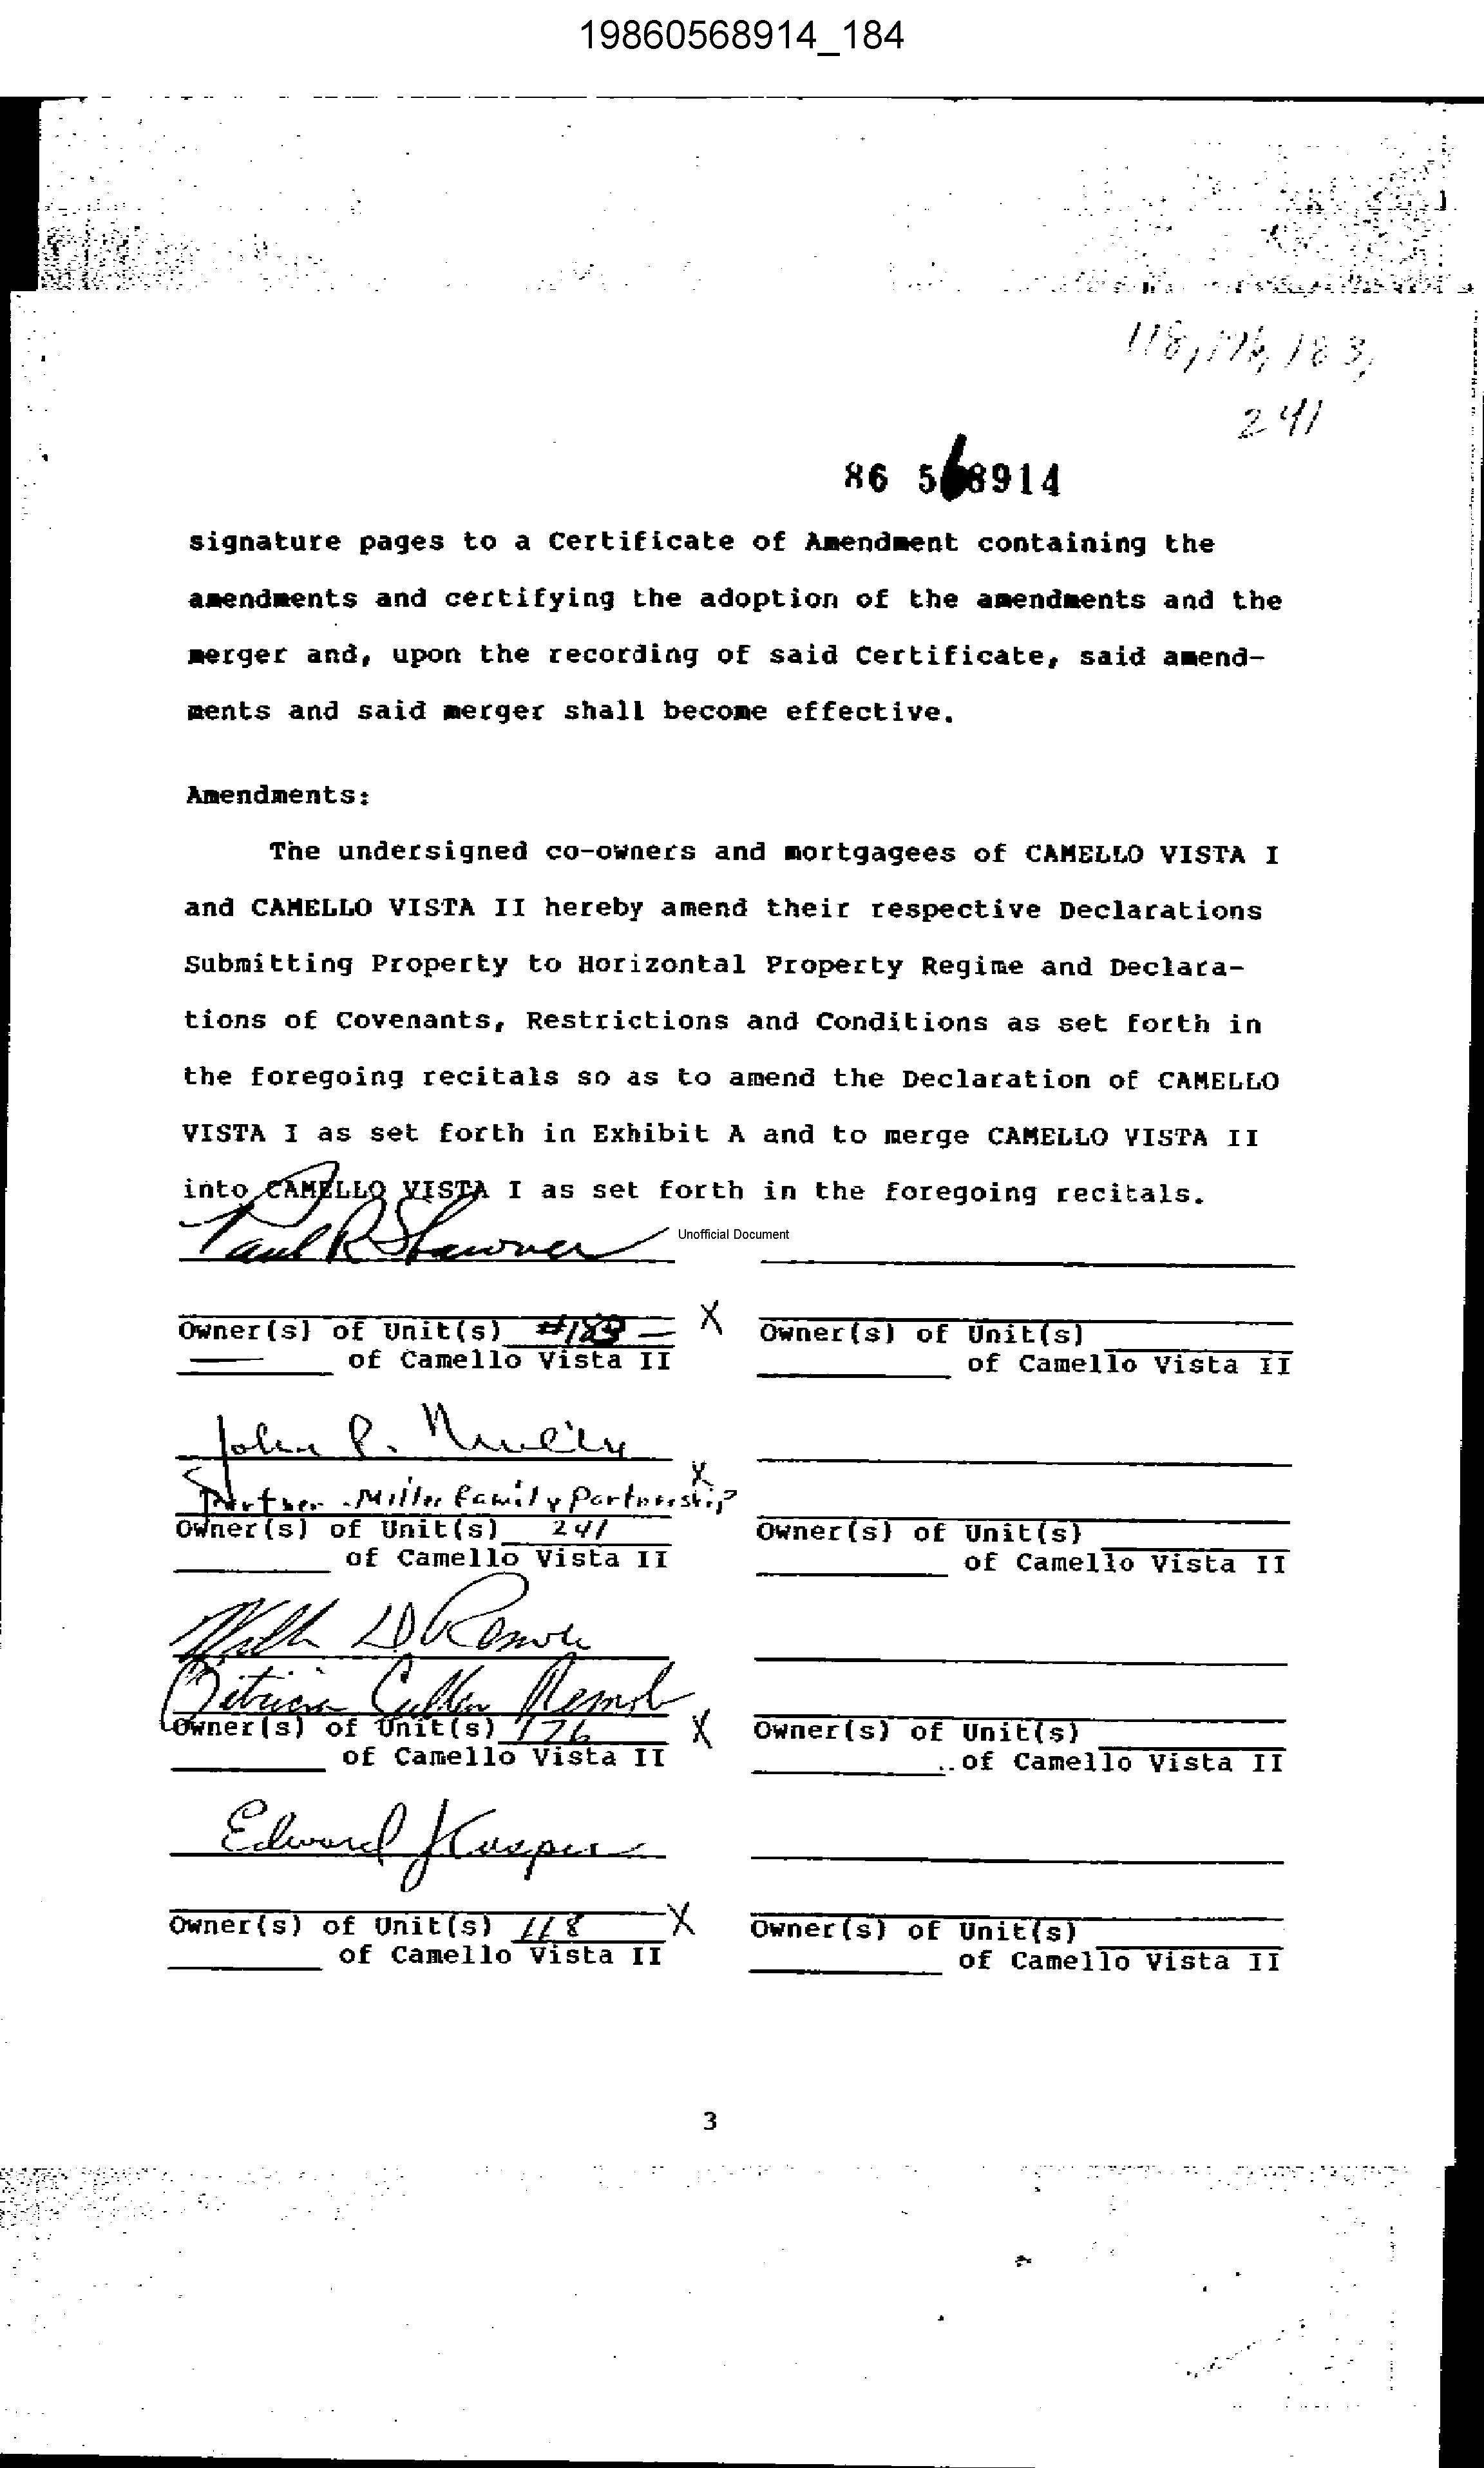 19860568914_184
118, 176, 183,
241
86 568914
signature pages to a Certificate of Amendment containing the
amendments and certifying the adoption of the amendments and the
merger and, upon the recording of said Certificate, said amend-
ments and said merger shall become effective.
Amendments:
The undersigned co-owners and mortgagees of CAMELLO VISTA I
and CAMELLO VISTA II hereby amend their respective Declarations
Submitting Property to Horizontal Property Regime and Declara-
tions of Covenants, Restrictions and Conditions as set forth in
the foregoing recitals so as to amend the Declaration of CAMELLO
VISTA I as set forth in Exhibit A and to merge CAMELLO VISTA II
into CAMELLO VISTA I as set forth in the foregoing recitals.
Paul R
Unofficial Document
Owner(s) of Unit(s) #183 X Owner(s) of Unit(s)
of Camello Vista II of Camello Vista II
John P.
Partner - Miller Family Partnership X
Owner(s) of Unit(s) 241 Owner(s) of Unit(s)
of Camello Vista II of Camello Vista II
D
Patricia Cullen
Owner(s) of Unit(s) 176 X Owner(s) of Unit(s)
of Camello Vista II of Camello Vista II
Edward
Owner(s) of Unit(s) 118 X Owner(s) of Unit(s)
of Camello Vista II of Camello Vista II
3